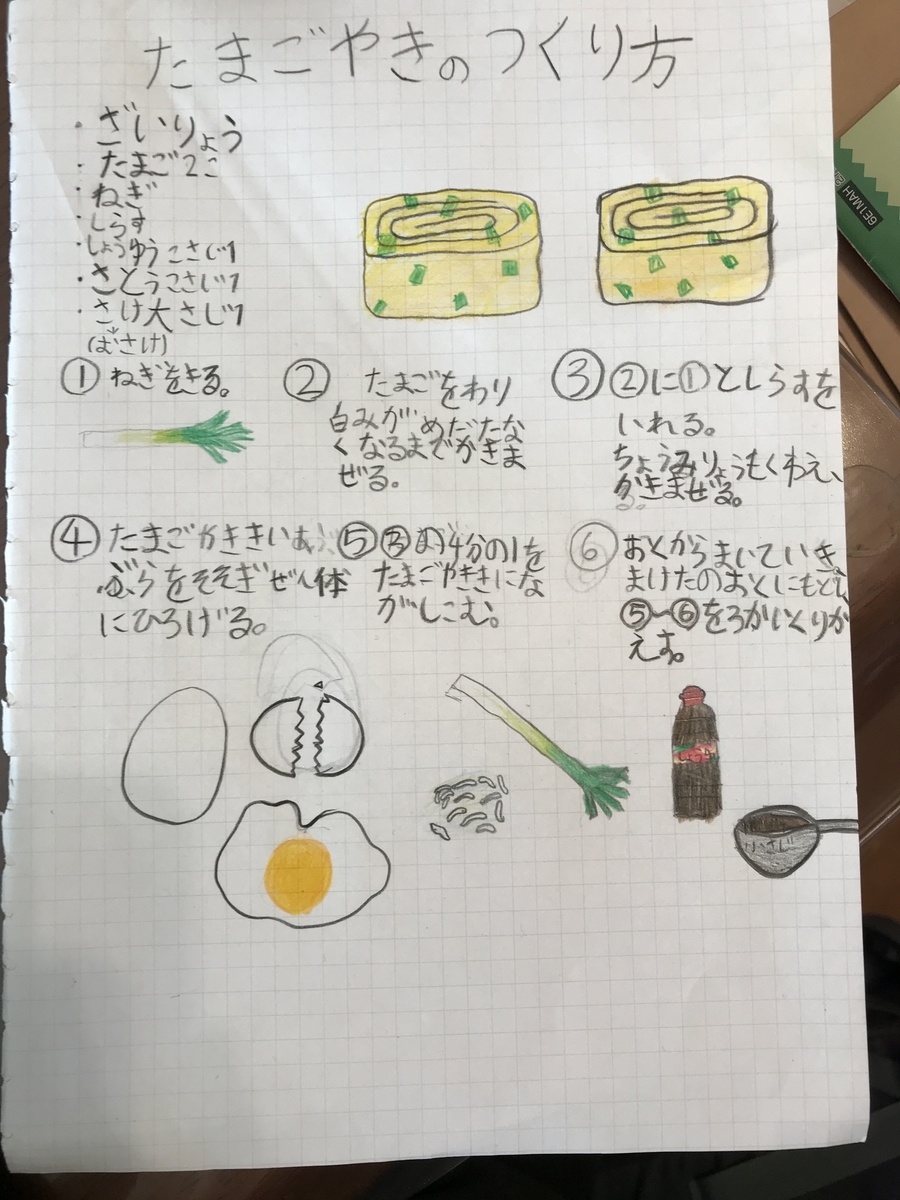 たまごやきのつくり方
・ざいりょう
・たまご2こ
・ねぎ
・しらす
・しょうゆうこさじ1
・さとうこさじ1
・さけ大さじ1
①ねぎをきる。
② たまごをわり
白みが めだたな
くなるまでかきま
ぜる。
③②に①としらすを
いれる。
ちょうみりょうもくわえ、
かきまぜる。
④たまごやききい
ぶらをそそぎぜん体
にひろげる。
⑤③の4分の1を
たまごやききにな
がしこむ。
⑥おくからまいていき
まけたのおくにもどし
⑤〜⑥を3かいくりか
えす。
小さじ